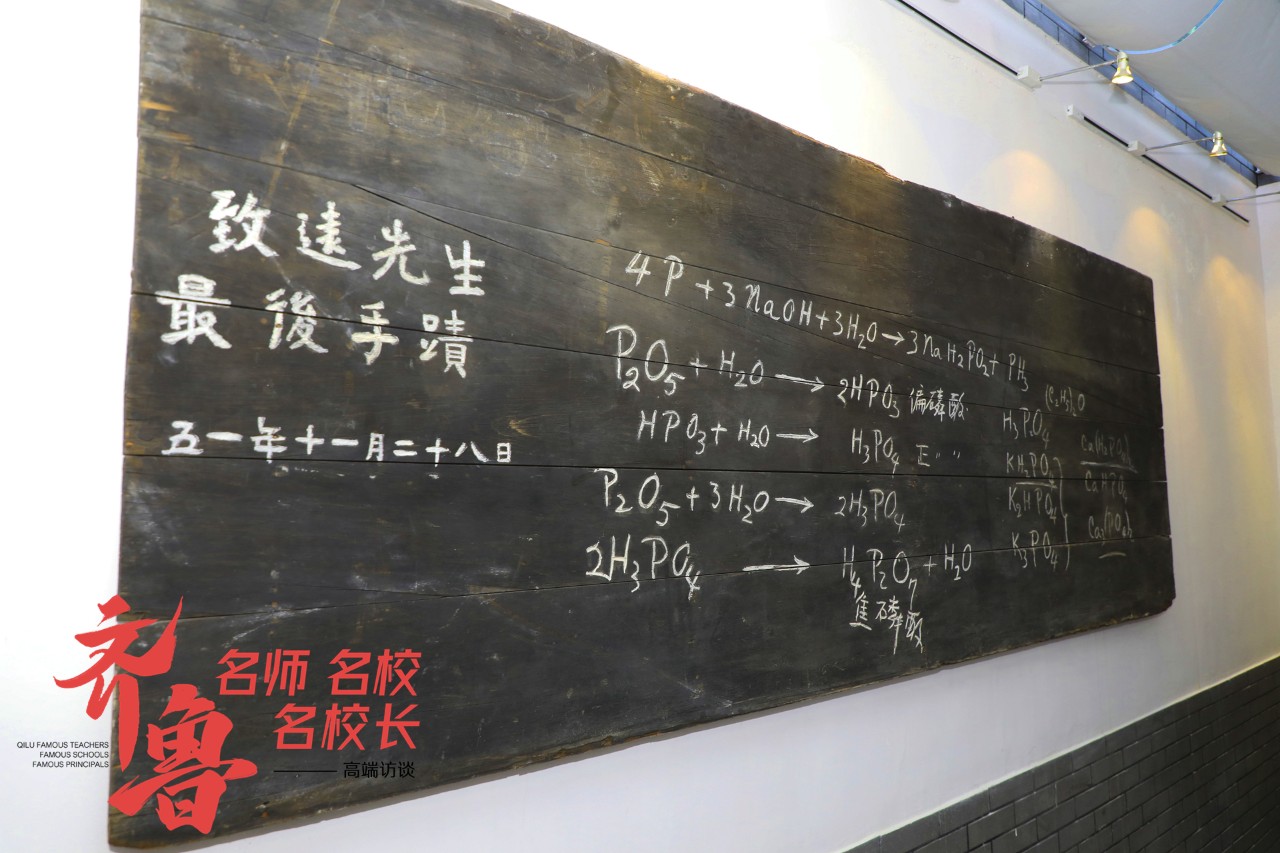 致遠先生
最後手蹟
五一年十一月二十八日
4P+3NaOH+3H₂O→3NaH₂PO₂+PH₃
P₂O₅+H₂O→2HPO₃ 偏磷酸
HPO₃+H₂O→H₃PO₄ 正〃〃
P₂O₅+3H₂O→2H₃PO₄
2H₃PO₄→H₄P₂O₇+H₂O
焦磷酸
(C₂H₅)₂O
H₃PO₄
KH₂PO₄
K₂HPO₄
K₃PO₄
Ca(H₂PO₄)₂
CaHPO₄
Ca₃(PO₄)₂
齐鲁
名师 名校
名校长
高端访谈
QILU FAMOUS TEACHERS
FAMOUS SCHOOLS
FAMOUS PRINCIPALS